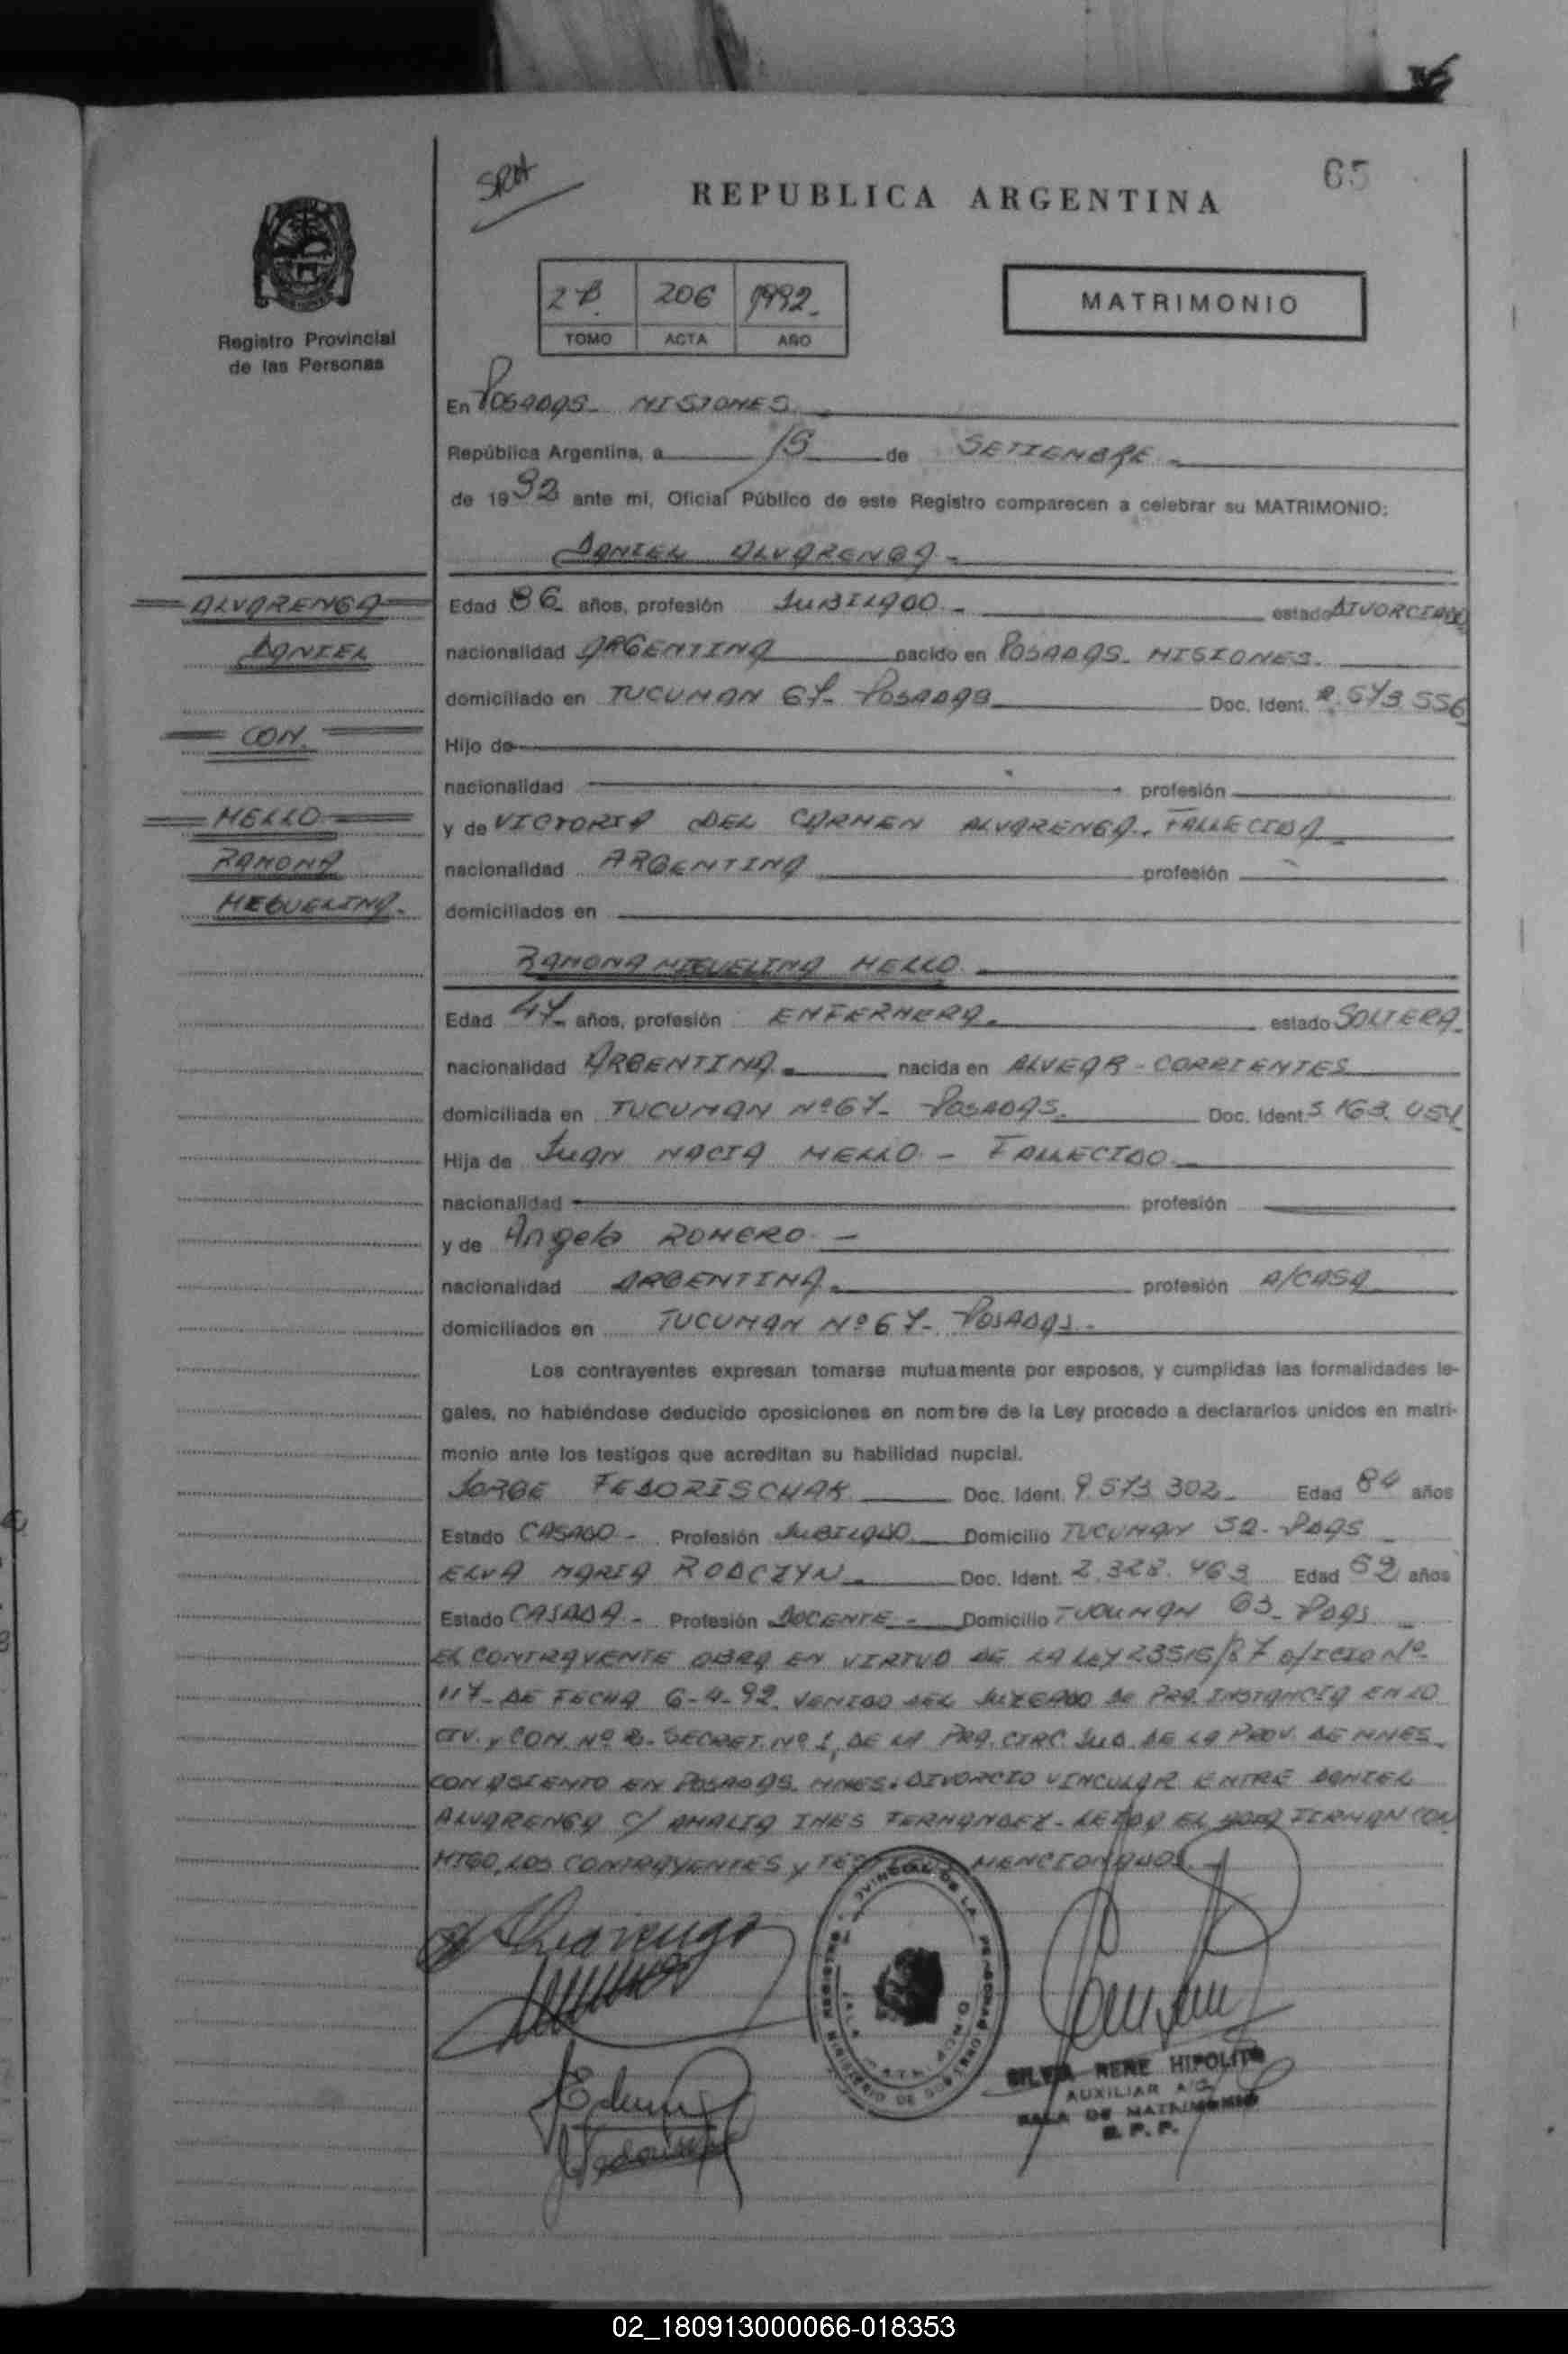 65
SRH
REPUBLICA ARGENTINA
Registro Provincial
de las Personas
2 B. 206 1992.
TOMO ACTA AÑO
MATRIMONIO
En POSADAS - MISIONES.
República Argentina, a 15 de SETIEMBRE.
de 1992 ante mí, Oficial Público de este Registro comparecen a celebrar su MATRIMONIO:
DANIEL ALVARENGA.
ALVARENGA
DANIEL
CON.
MELLO
RAMONA
MEGUELINA.
Edad 86 años, profesión JUBILADO. estado DIVORCIADO
nacionalidad ARGENTINA nacido en POSADAS. MISIONES.
domiciliado en TUCUMAN 67- POSADAS Doc. Ident. 573.556
Hijo de
nacionalidad profesión
y de VICTORIA DEL CARMEN ALVARENGA. FALLECIDA
nacionalidad ARGENTINA profesión
domiciliados en
RAMONA MIGUELINA MELLO.
Edad 47 años, profesión ENFERMERA. estado SOLTERA.
nacionalidad ARGENTINA. nacida en ALVEAR - CORRIENTES
domiciliada en TUCUMAN Nº 67- POSADAS. Doc. Ident. 5.163.454
Hija de JUAN MACIA MELLO - FALLECIDO.
nacionalidad profesión
y de Angela ROMERO. -
nacionalidad ARGENTINA. profesión A/CASA
domiciliados en TUCUMAN Nº 67- POSADAS.
Los contrayentes expresan tomarse mutuamente por esposos, y cumplidas las formalidades le-
gales, no habiéndose deducido oposiciones en nombre de la Ley procedo a declararlos unidos en matri-
monio ante los testigos que acreditan su habilidad nupcial.
JORGE FEDORISCHAK Doc. Ident. 9.573.302 Edad 84 años
Estado CASADO - Profesión JUBILADO Domicilio TUCUMAN 52- PDAS
ELVA MARIA RODCZYN Doc. Ident. 2.328.463 Edad 52 años
Estado CASADA - Profesión DOCENTE - Domicilio TUCUMAN 63- PDAS
EL CONTRAYENTE OBRA EN VIRTUD DE LA LEY 23515/87 OFICIO Nº
117- DE FECHA 6-4-92. VENIDO DEL JUZGADO DE PRA. INSTANCIA EN LO
CIV. y COM. Nº 2- SECRET. Nº 1, DE LA PRA. CIRC. JUD. DE LA PROV. DE MNES.
CON ASIENTO EN POSADAS. MNES. DIVORCIO VINCULAR ENTRE DANIEL
ALVARENGA C/ AMALIA INES FERNANDEZ - LEIDA EL ACTA FIRMAN CON
MIGO, LOS CONTRAYENTES y TESTIGOS MENCIONADOS.
SILVA RENE HIPOLITO
AUXILIAR A/C.
SALA DE MATRIMONIO
R. P. P.
02_180913000066-018353